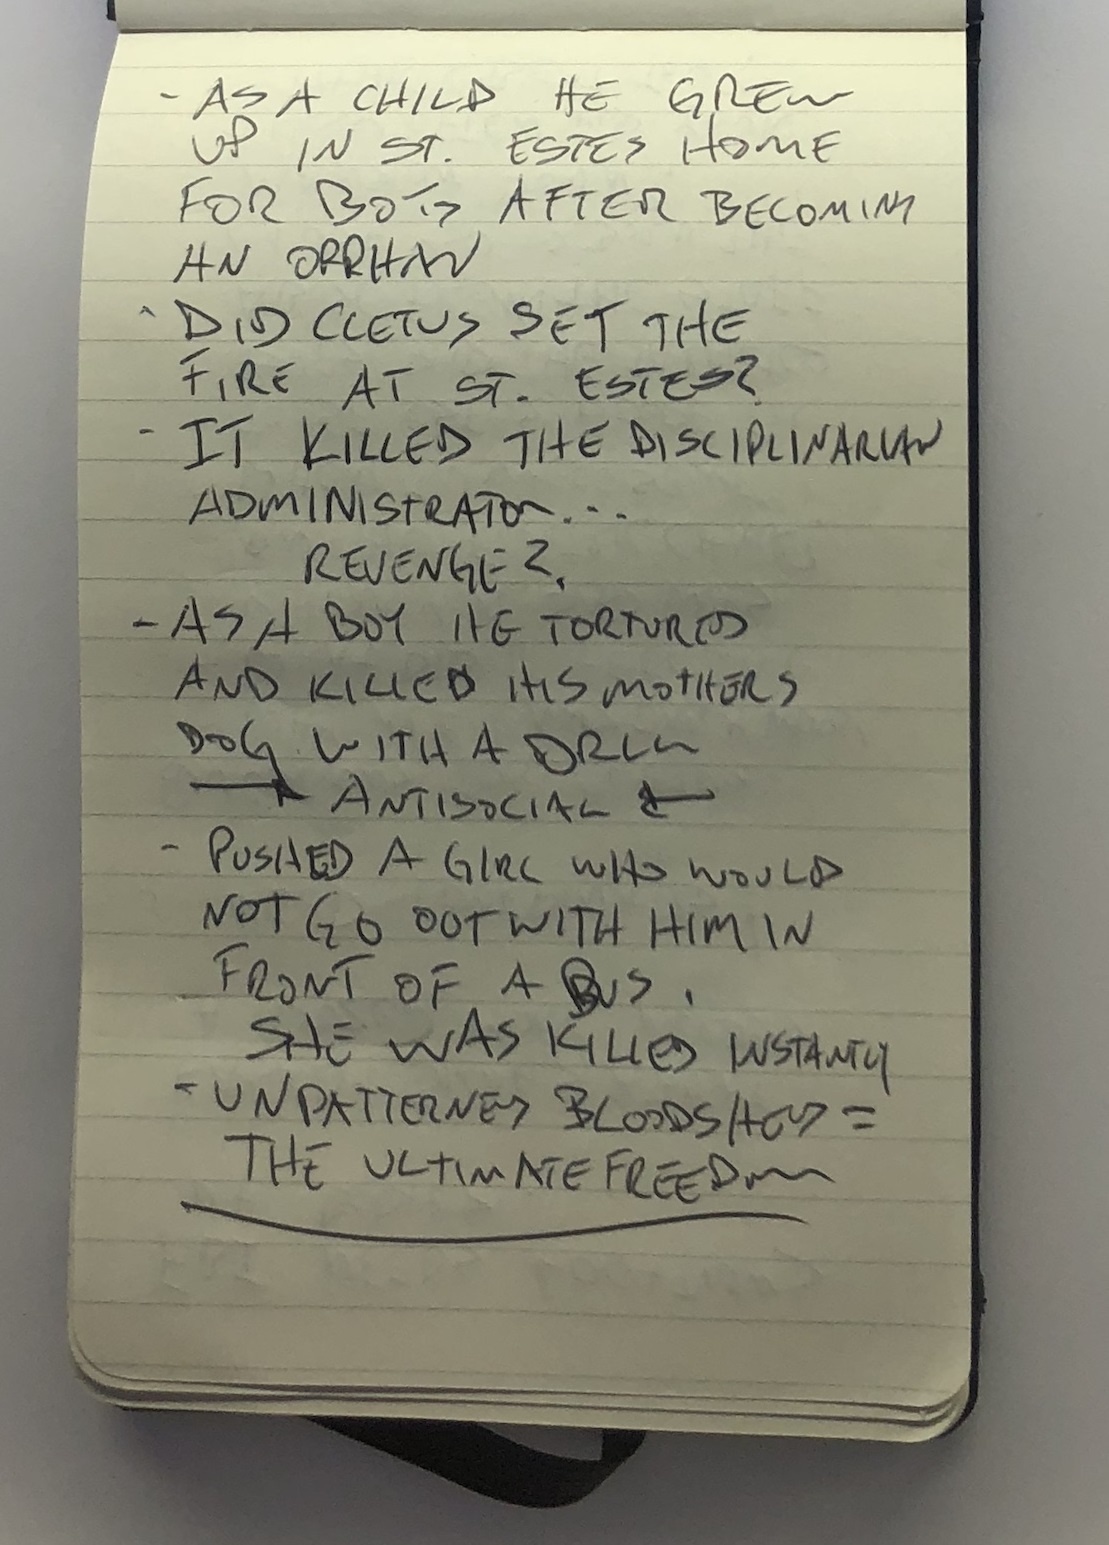 - AS A CHILD HE GREW
UP IN ST. ESTES HOME
FOR BOYS AFTER BECOMING
AN ORPHAN
- DID CLETUS SET THE
FIRE AT ST. ESTES?
- IT KILLED THE DISCIPLINARIAN
ADMINISTRATOR...
REVENGE?.
- AS A BOY HE TORTURED
AND KILLED HIS MOTHERS
DOG WITH A DRILL
→ ANTISOCIAL ←
- PUSHED A GIRL WHO WOULD
NOT GO OUT WITH HIM IN
FRONT OF A BUS.
SHE WAS KILLED INSTANTLY
- UNPATTERNED BLOODSHED =
THE ULTIMATE FREEDOM